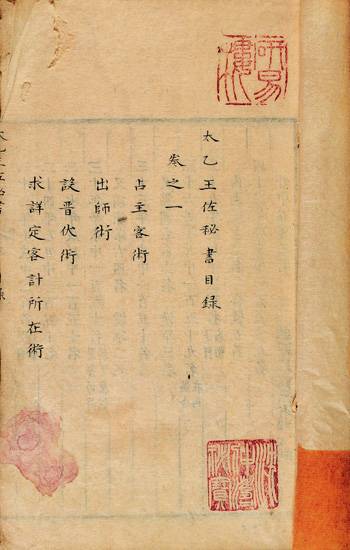 太乙王佐秘書目錄
卷之一
占主客術
出師術
設晉伏術
求詳定客計所在術